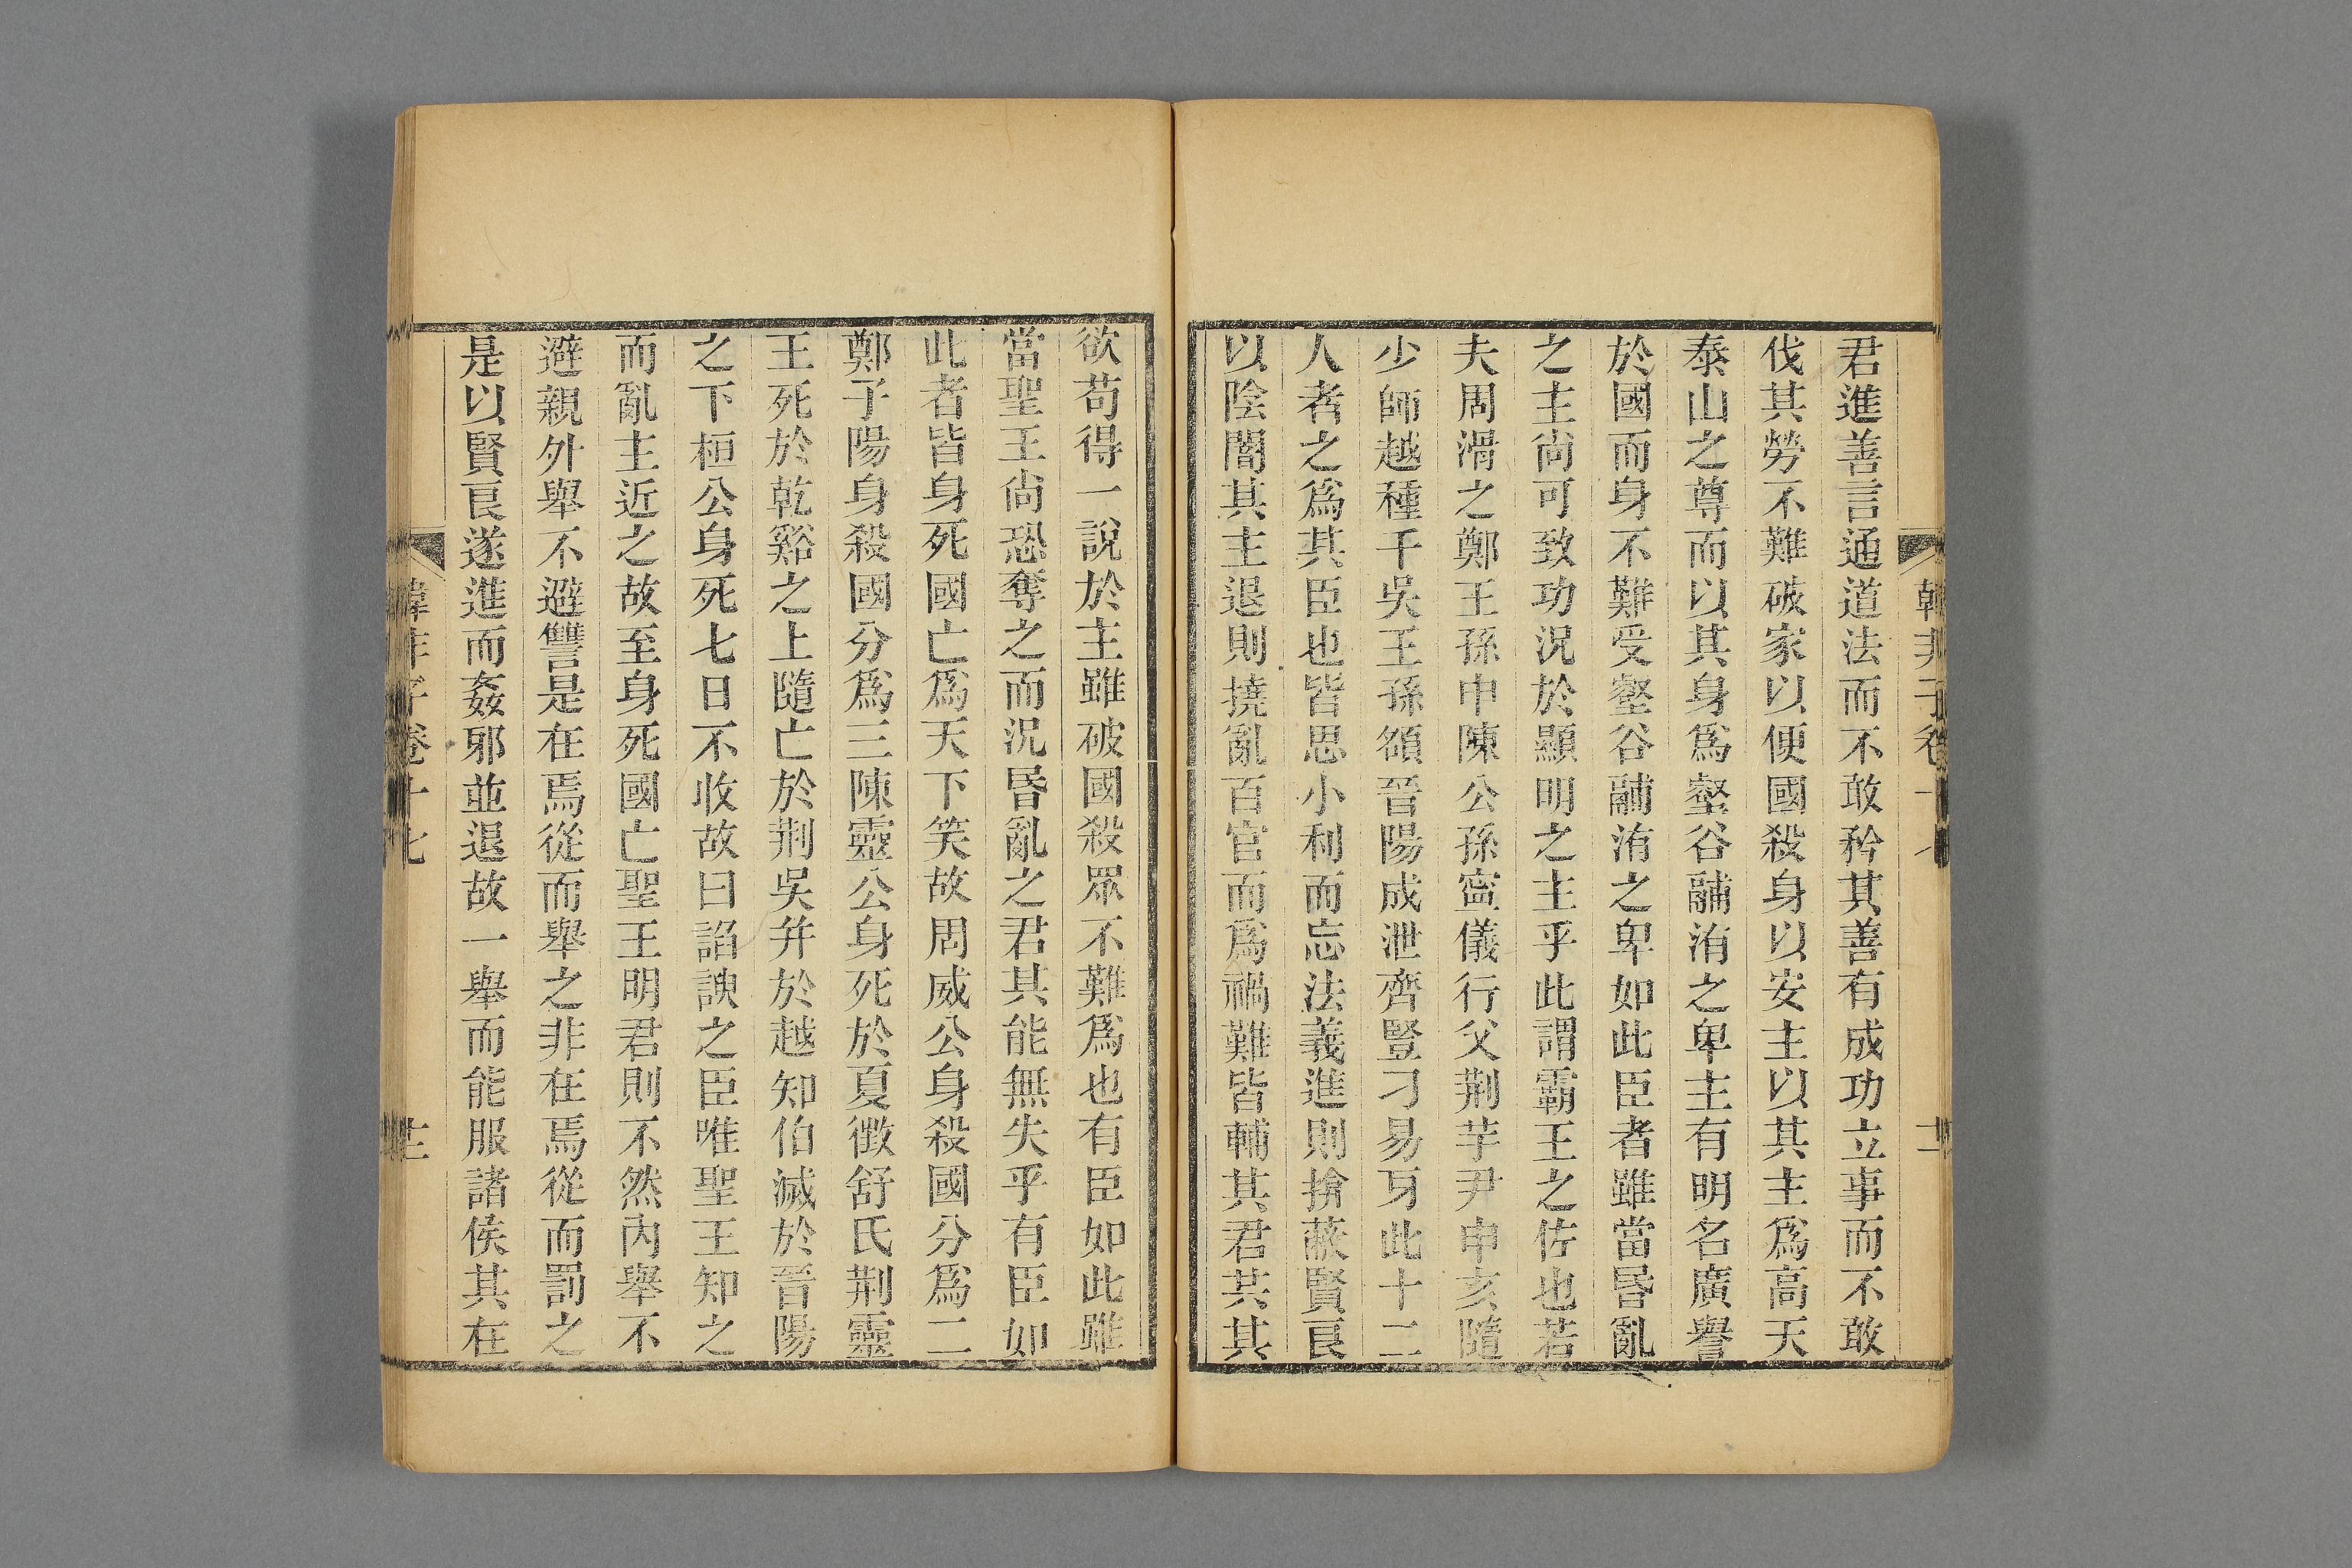 君進善言通道法而不敢矜其善有成功立事而不敢
伐其勞不難破家以便國殺身以安主以其主爲高天
泰山之尊而以其身爲壑谷鬴洧之卑主有明名廣譽
於國而身不難受壑谷鬴洧之卑如此臣者雖當昬亂
之主尙可致功況於顯明之主乎此謂霸王之佐也若
夫周滑之鄭王孫申陳公孫寧儀行父荆芋尹申亥隨
少師越種干吳王孫頟晉陽成泄齊豎刁易牙此十二
人者之爲其臣也皆思小利而忘法義進則揜蔽賢良
以陰闇其主退則撓亂百官而爲禍難皆輔其君共其
欲苟得一說於主雖破國殺眾不難爲也有臣如此雖
當聖王尙恐奪之而況昬亂之君其能無失乎有臣如
此者皆身死國亡爲天下笑故周威公身殺國分爲二
鄭子陽身殺國分爲三陳靈公身死於夏徵舒氏荆靈
王死於乾谿之上隨亡於荆吳幷於越知伯滅於晉陽
之下桓公身死七日不收故曰諂諛之臣唯聖王知之
而亂主近之故至身死國亡聖王明君則不然內舉不
避親外舉不避讐是在焉從而舉之非在焉從而罰之
是以賢良遂進而姦邪並退故一舉而能服諸侯其在
韓非子卷十七